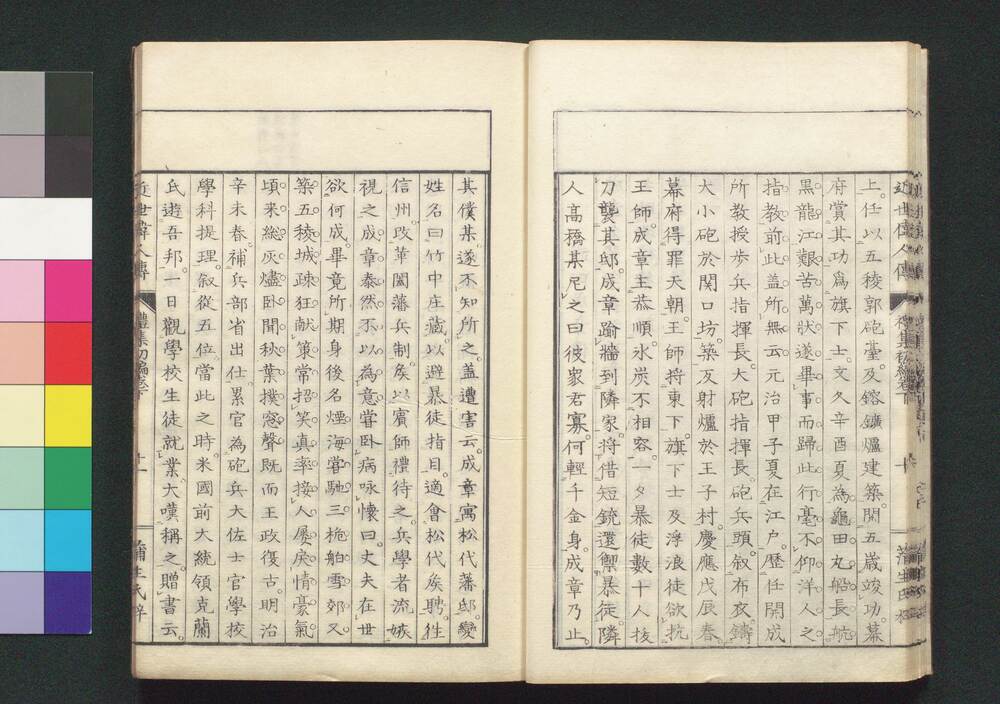 近世偉人傳
上。任以五稜郭砲臺。及鎔鑛爐建築。閱五歲竣功。幕
府賞其功爲旗下士。文久辛酉夏為龜田丸船長。航
黑龍江。艱苦萬狀。遂畢事而歸。此行毫不仰洋人之
指教。前此蓋所無云。元治甲子夏在江戶。歷任開成
所教授步兵指揮長。大砲指揮長。砲兵頭。叙布衣。鑄
大小砲於関口坊。築反射爐於王子村。慶應戊辰春。
幕府得罪天朝。王師將東下。旗下士及浮浪徒欲抗
王師。成章主恭順。氷炭不相容。一夕暴徒數十人拔
刀襲其邸。成章踰牆到隣家。將借短銃還禦暴徒。隣
人高橋某尼之曰。彼衆君寡。何輕千金身。成章乃止。
其僕某。遂不知所之。蓋遭害云。成章寓松代藩邸。變
姓名曰竹中庄藏。以避暴徒指目。適會松代矦聘。往
信州。改革闔藩兵制。矦以賓師禮待之。兵學者流嫉
視之。成章泰然不以為意。嘗臥病咏懷曰。丈夫在世
欲何成。畢竟所期身後名。煙海嘗馳三桅舶。雪郊又
築五稜城。疎狂献策常招笑。真率接人屢戾情。豪氣
頃來総灰燼。卧聞秋葉撲窓聲。既而王政復古。明治
辛未春。補兵部省出仕。累官為砲兵大佐士官學挍
學科提理。叙從五位。當此之時。米國前大統領克蘭
氏遊吾邦。一日觀學校生徒就業。大嘆稱之。贈書云。
近世偉人傳 禮集初編卷下 十一 蒲生氏梓